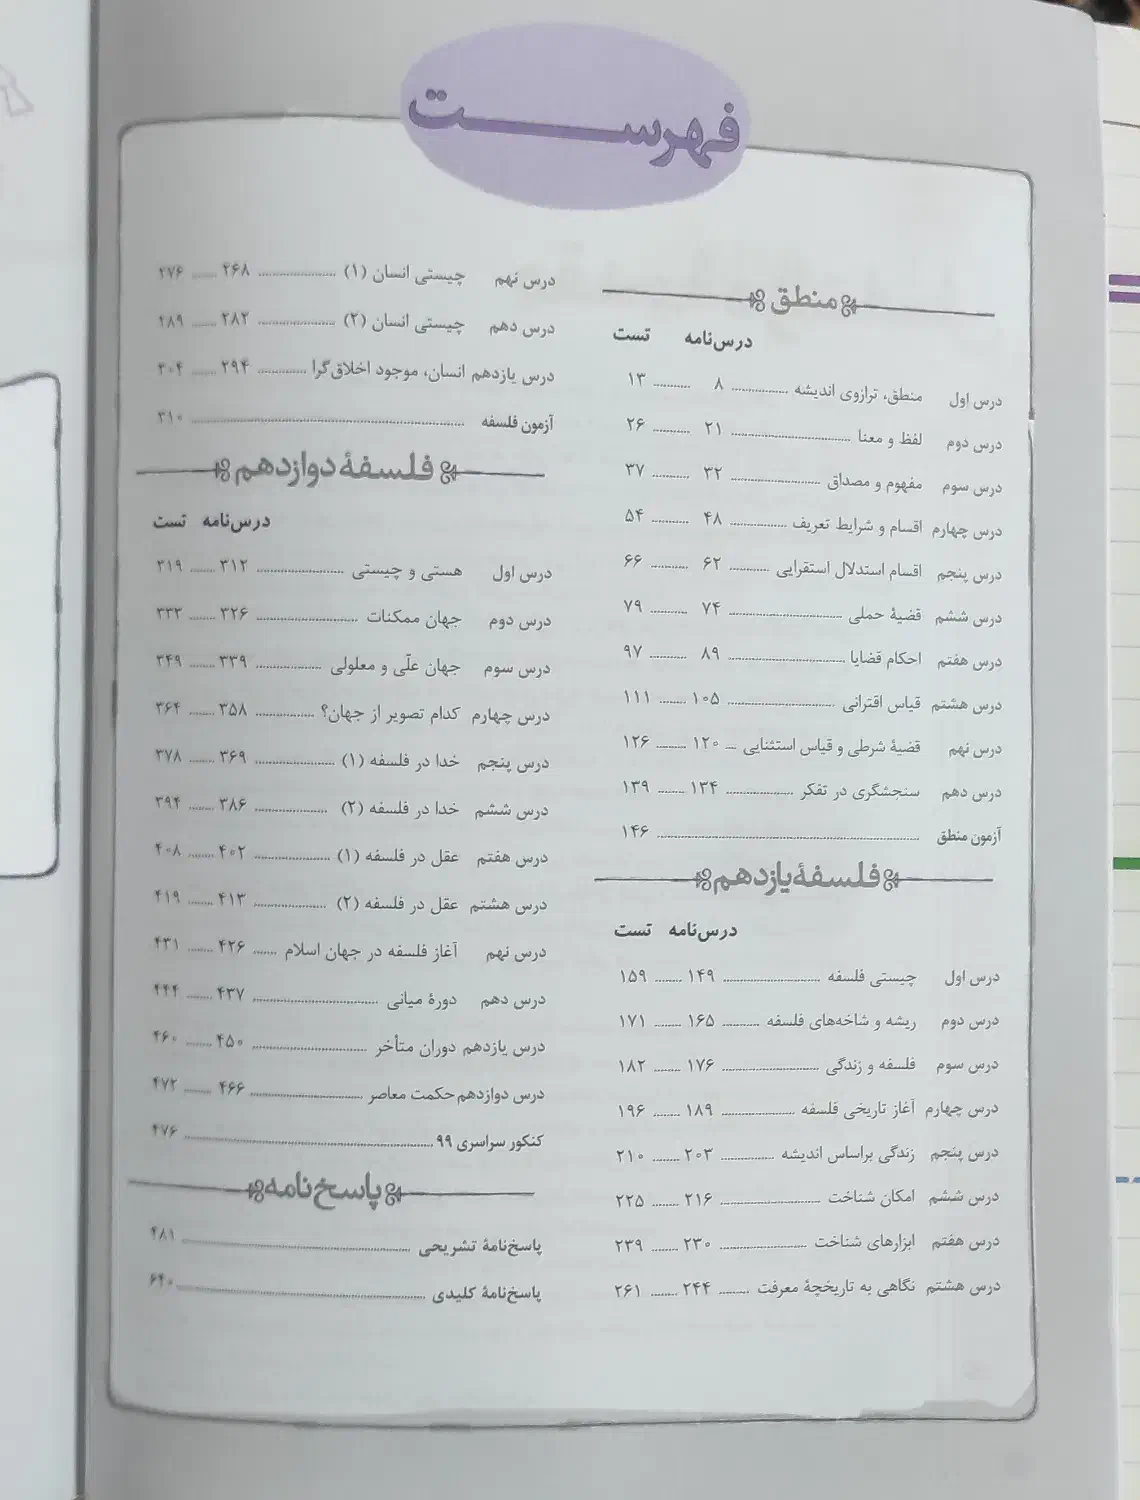 فهرست
منطق
درس‌نامه تست
درس اول منطق، ترازوی اندیشه ۸ ۱۳
درس دوم لفظ و معنا ۲۱ ۲۶
درس سوم مفهوم و مصداق ۳۲ ۳۷
درس چهارم اقسام و شرایط تعریف ۴۸ ۵۴
درس پنجم اقسام استدلال استقرایی ۶۲ ۶۶
درس ششم قضیهٔ حملی ۷۴ ۷۹
درس هفتم احکام قضایا ۸۹ ۹۷
درس هشتم قیاس اقترانی ۱۰۵ ۱۱۱
درس نهم قضیهٔ شرطی و قیاس استثنایی ۱۲۰ ۱۲۶
درس دهم سنجشگری در تفکر ۱۳۴ ۱۳۹
آزمون منطق ۱۴۶
فلسفهٔ یازدهم
درس‌نامه تست
درس اول چیستی فلسفه ۱۴۹ ۱۵۹
درس دوم ریشه و شاخه‌های فلسفه ۱۶۵ ۱۷۱
درس سوم فلسفه و زندگی ۱۷۶ ۱۸۲
درس چهارم آغاز تاریخی فلسفه ۱۸۹ ۱۹۶
درس پنجم زندگی براساس اندیشه ۲۰۳ ۲۱۰
درس ششم امکان شناخت ۲۱۶ ۲۲۵
درس هفتم ابزارهای شناخت ۲۳۰ ۲۳۹
درس هشتم نگاهی به تاریخچهٔ معرفت ۲۴۴ ۲۶۱
درس نهم چیستی انسان (۱) ۲۶۸ ۲۷۶
درس دهم چیستی انسان (۲) ۲۸۲ ۲۸۹
درس یازدهم انسان، موجود اخلاق‌گرا ۲۹۴ ۳۰۴
آزمون فلسفه ۳۱۰
فلسفهٔ دوازدهم
درس‌نامه تست
درس اول هستی و چیستی ۳۱۲ ۳۱۹
درس دوم جهان ممکنات ۳۲۶ ۳۳۳
درس سوم جهان علّی و معلولی ۳۳۹ ۳۴۹
درس چهارم کدام تصویر از جهان؟ ۳۵۸ ۳۶۴
درس پنجم خدا در فلسفه (۱) ۳۶۹ ۳۷۸
درس ششم خدا در فلسفه (۲) ۳۸۶ ۳۹۴
درس هفتم عقل در فلسفه (۱) ۴۰۲ ۴۰۸
درس هشتم عقل در فلسفه (۲) ۴۱۳ ۴۱۹
درس نهم آغاز فلسفه در جهان اسلام ۴۲۶ ۴۳۱
درس دهم دورهٔ میانی ۴۳۷ ۴۴۴
درس یازدهم دوران متأخر ۴۵۰ ۴۶۰
درس دوازدهم حکمت معاصر ۴۶۶ ۴۷۲
کنکور سراسری ۹۹ ۴۷۶
پاسخ‌نامه
پاسخ‌نامهٔ تشریحی ۴۸۱
پاسخ‌نامهٔ کلیدی ۶۴۰